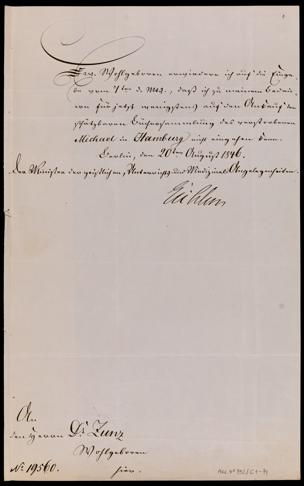 Ew. Wohlgeboren erwiedere ich auf die Eingabe
be vom 7ten d. Mts., daß ich zu meinem Bedau-
ern für jetzt wenigstens auf den Ankauf der
schätzbaren Büchersammlung des verstorbenen
Michael in Hamburg nicht eingehen kann.
Berlin, den 20ten August 1846.
Der Minister der geistlichen, Unterrichts und Medizinal Angelegenheiten.
Eichhorn
An
den Herrn Dr Zunz
Wohlgeboren
No 19560. hier.